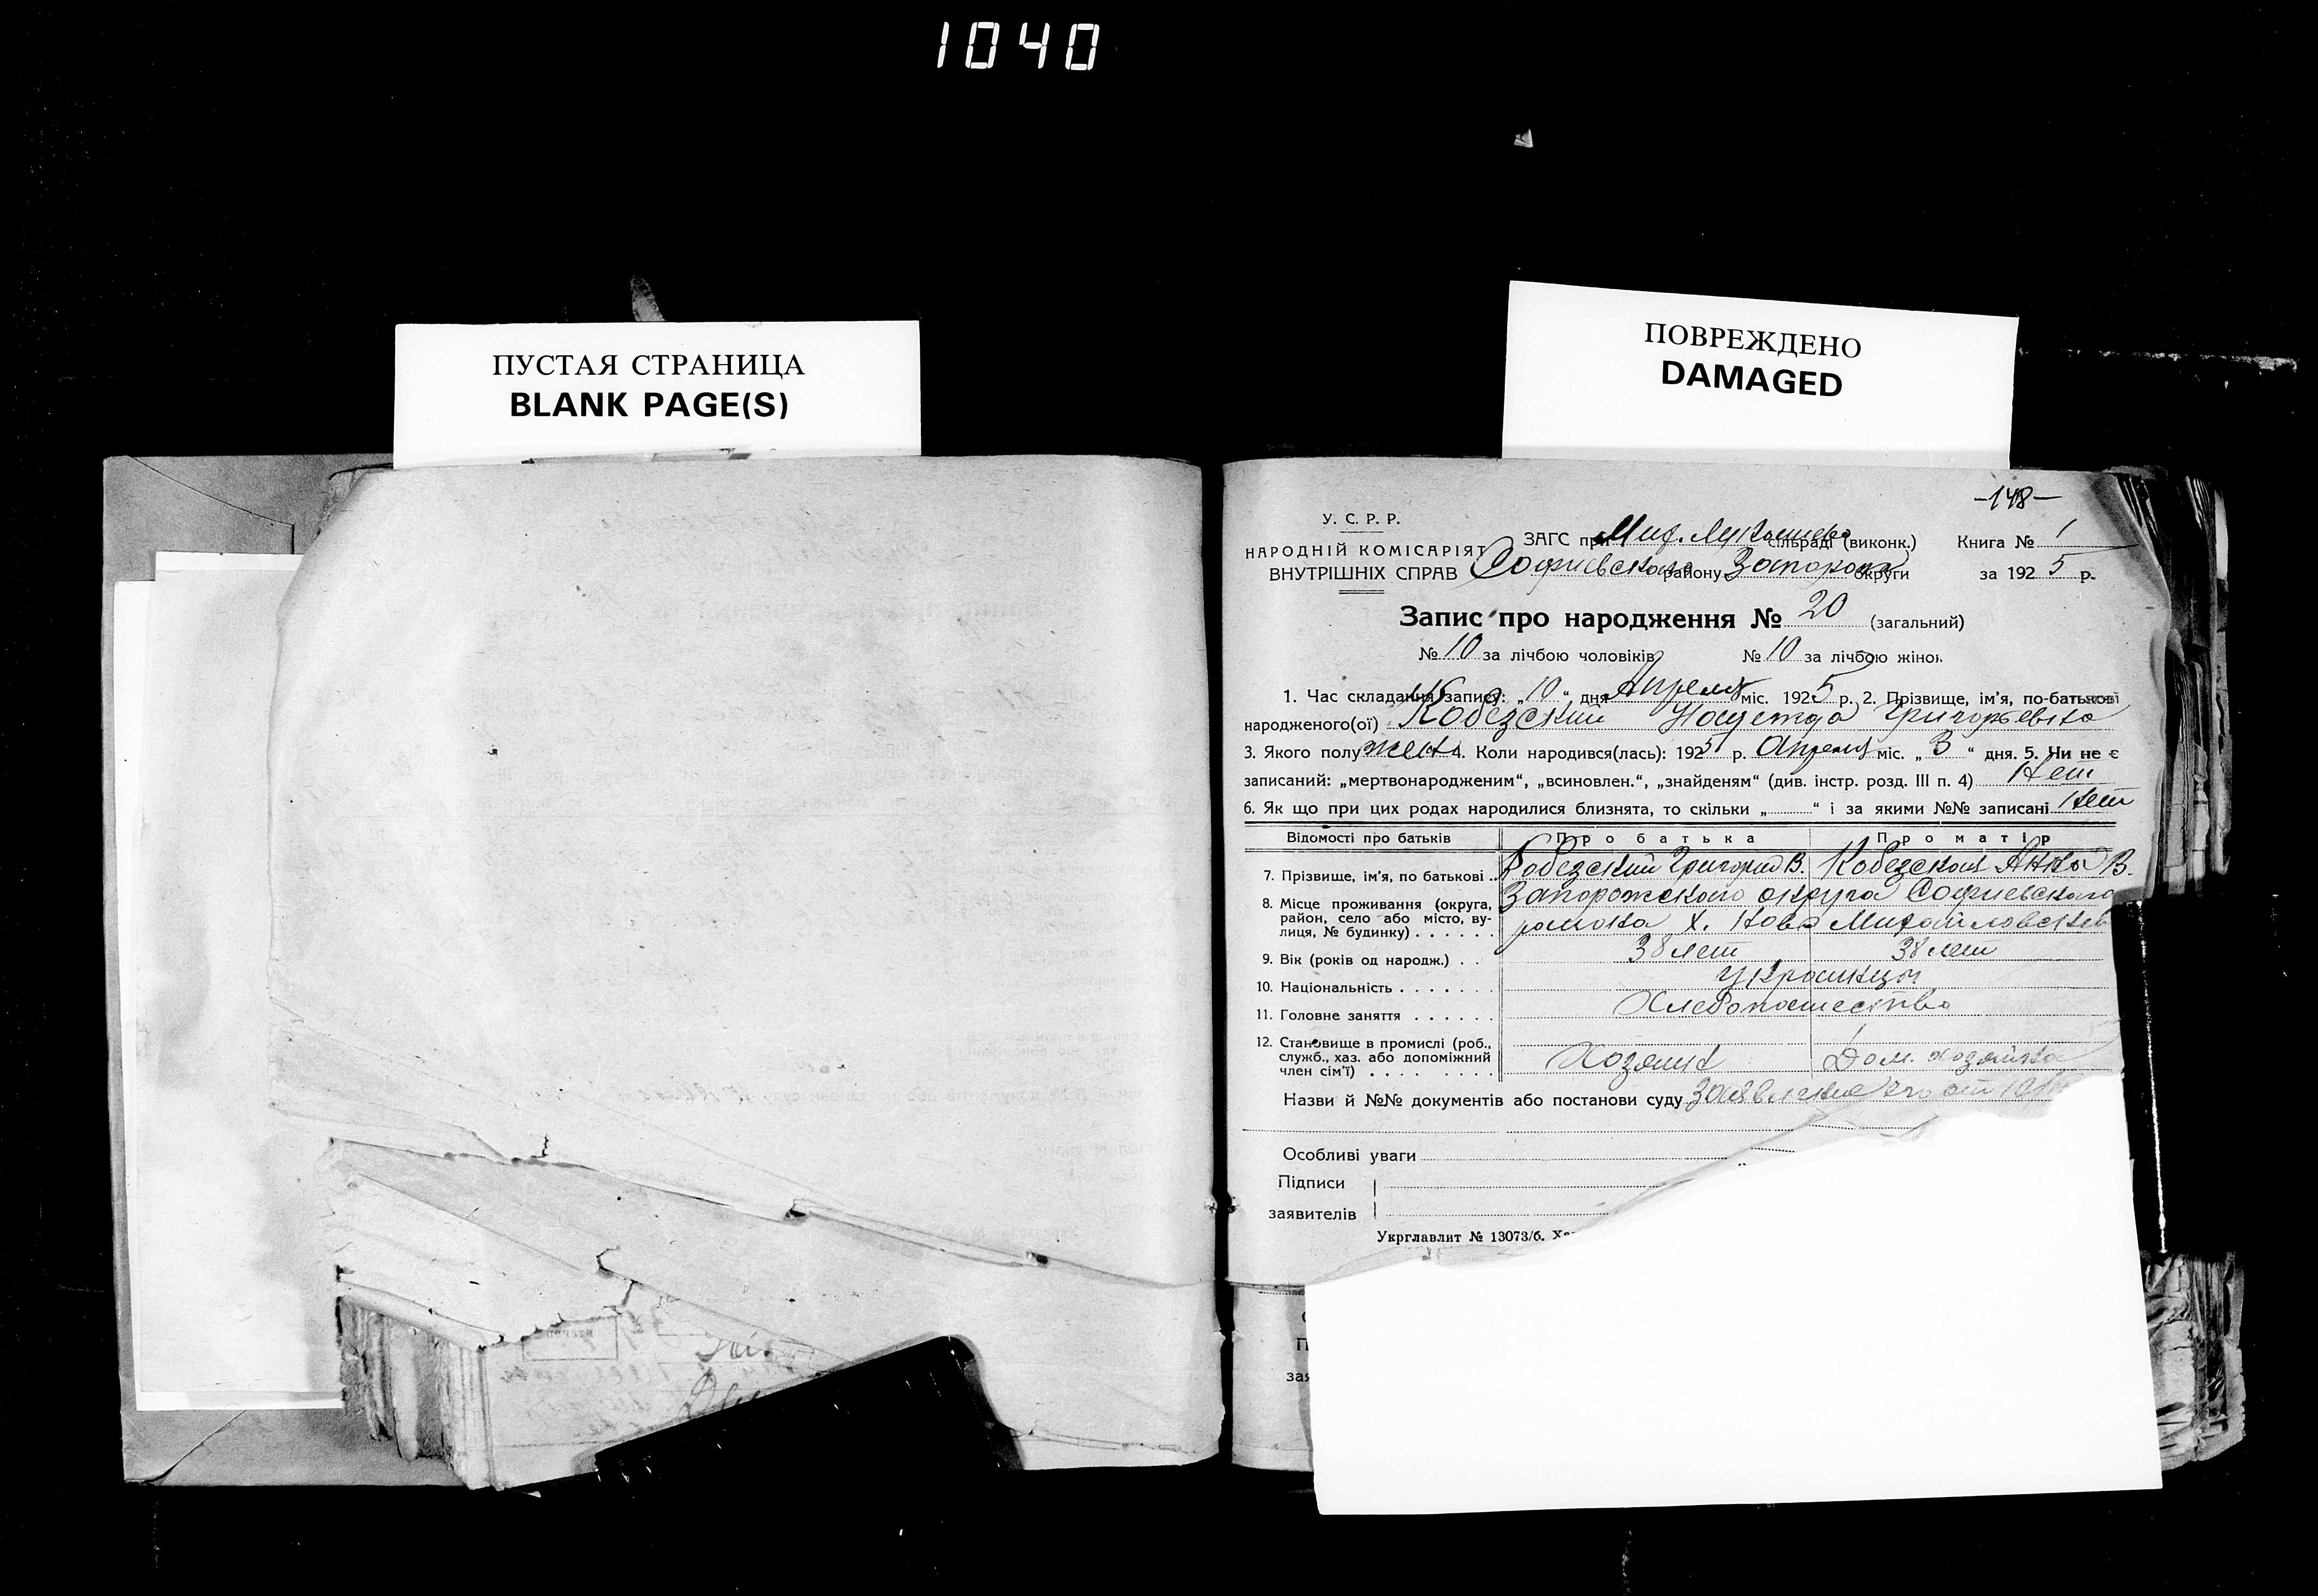 1040
ПУСТАЯ СТРАНИЦА
BLANK PAGE(S)
ПОВРЕЖДЕНО
DAMAGED
-148-
У. С. Р. Р.
НАРОДНІЙ КОМІСАРІЯТ
ВНУТРІШНІХ СПРАВ
ЗАГС при Мих. Лукашево сільраді (виконк.) Книга № 1
Софиевского району Запорож округи за 1925 р.
Запис про народження № 20 (загальний)
№ 10 за лічбою чоловіків № 10 за лічбою жінок
1. Час складання запису: „10“ дня Апреля міс. 1925 р. 2. Прізвище, ім’я, по-батькові
народженого(ої) Кобезский Надежда Григорьевна
3. Якого полу жен. 4. Коли народився(лась): 1925 р. Апреля міс. „3“ дня. 5. Чи не є
записаний: „мертвонародженим“, „всиновлен.“, „знайденям“ (див. інстр. розд. III п. 4) Нет
6. Як що при цих родах народилися близнята, то скільки „ “ і за якими №№ записані Нет
Відомості про батьків Про батька Про матір
7. Прізвище, ім’я, по батькові Кобезский Григорий В. Кобезская Анна В.
8. Місце проживання (округа, район, село або місто, вулиця, № будинку) Запорожского округа Софиевского
района х. Ново Михайловский
9. Вік (років од народж.) 38 лет 38 лет
10. Національність Украинцы
11. Головне заняття Хлебопашество
12. Становище в промислі (роб., служб., хаз. або допоміжний член сім’ї) Хозяин Дом. хозяйка
Назви й №№ документів або постанови суду Заявление его от
Особливі уваги
Підписи
заявителів
Укрглавлит № 13073/б.